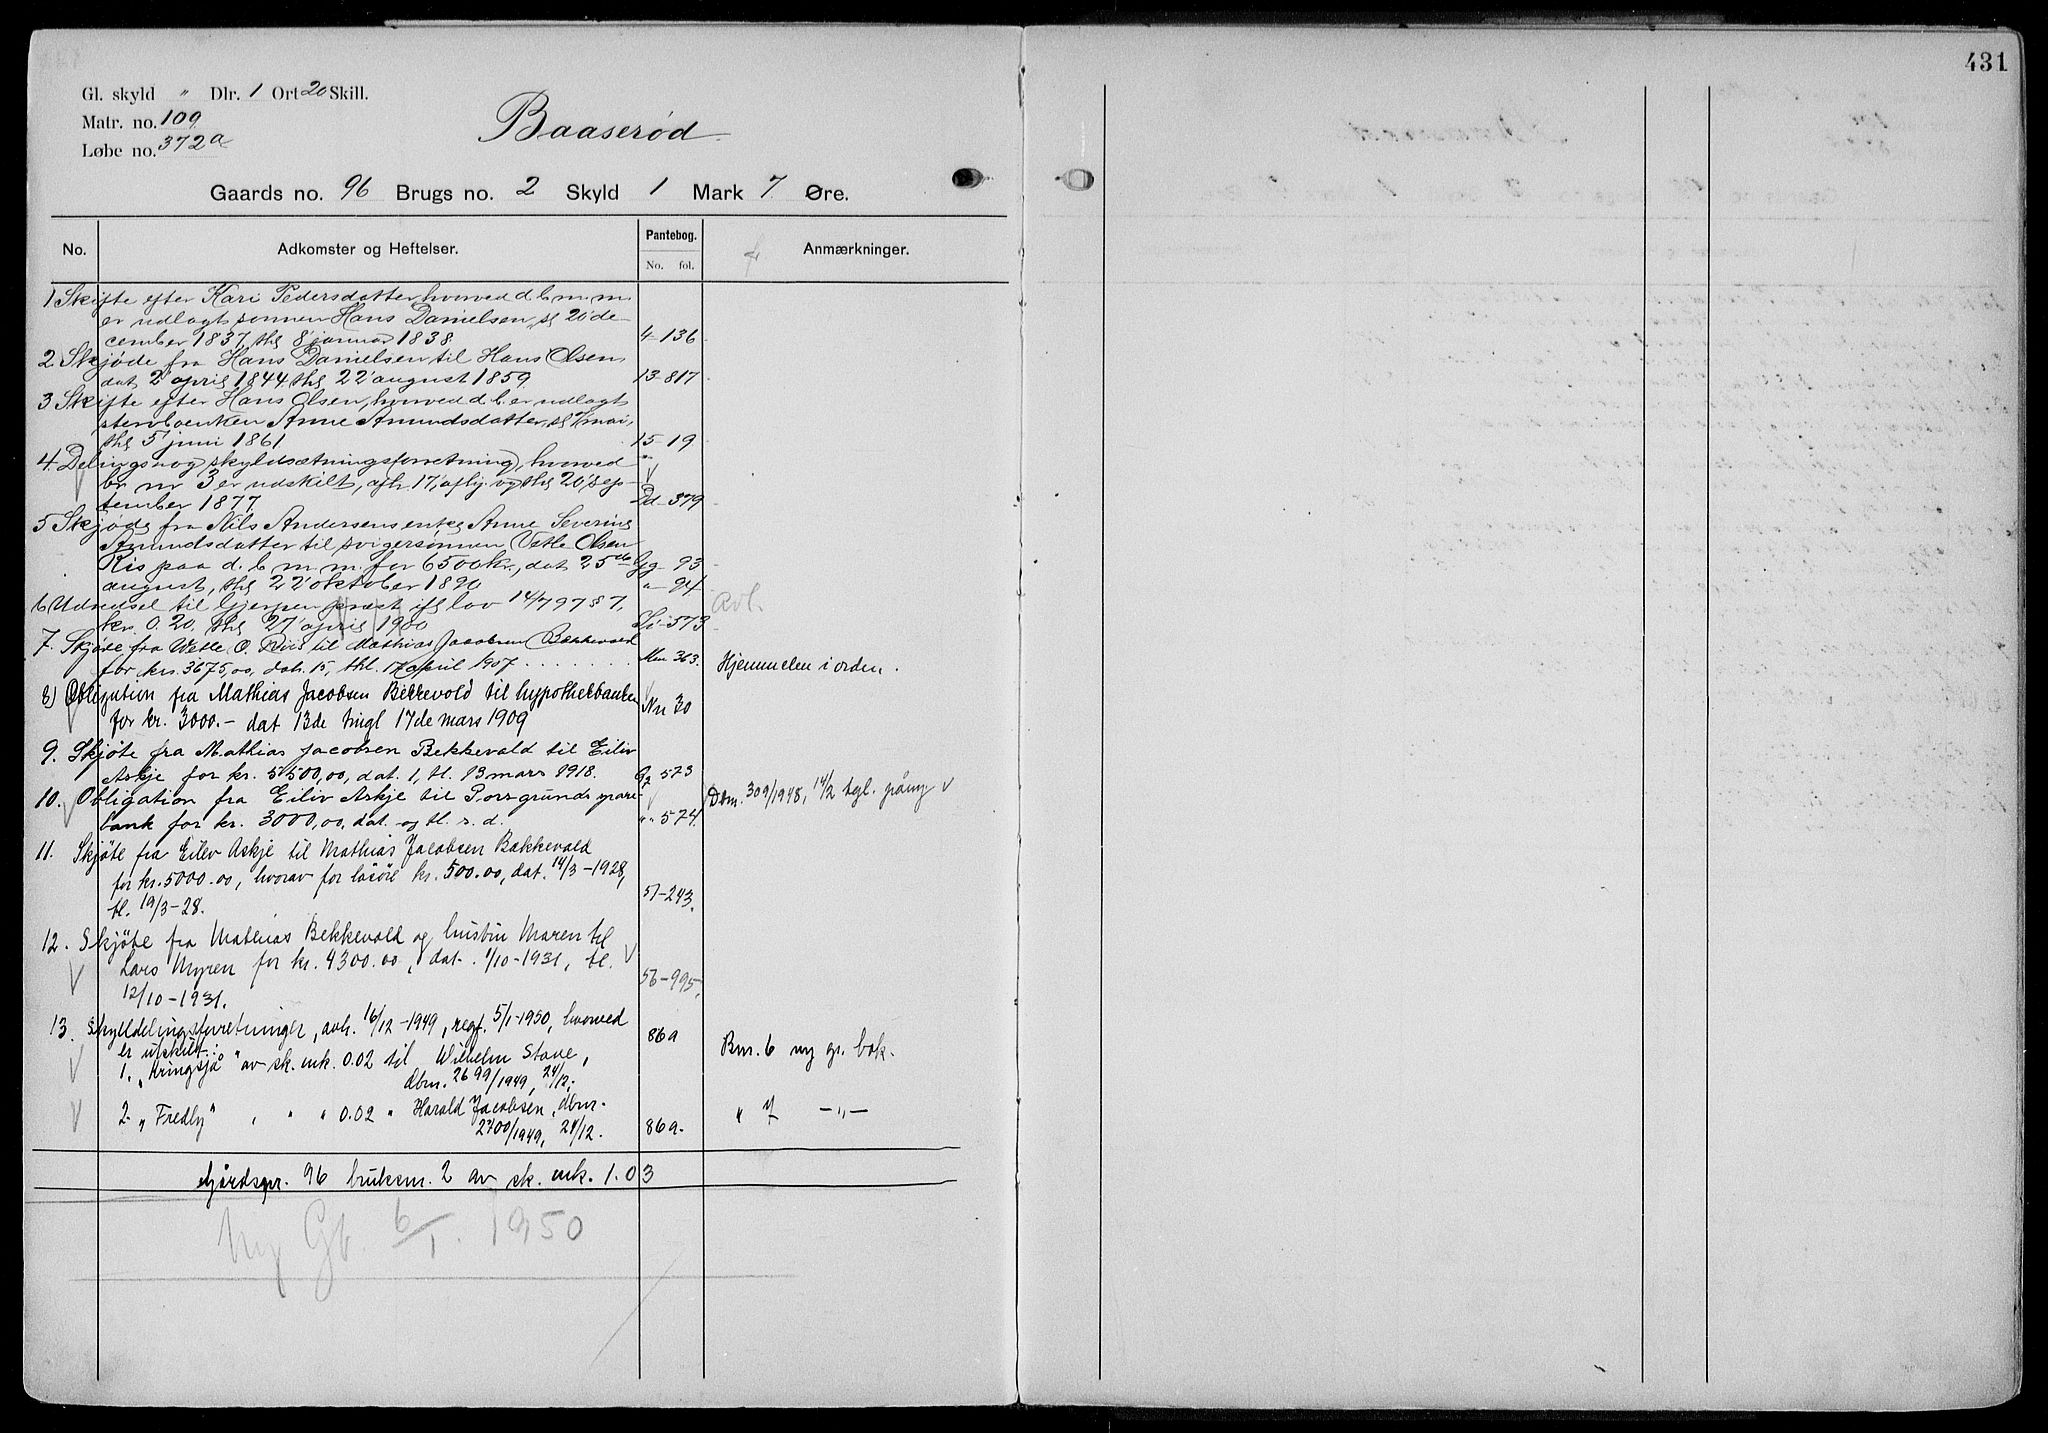 431
Gl. skyld " Dlr. 1 Ort 20 Skill.
Matr. no. 109
Løbe no. 372a
Baaserød
Gaards no. 96 Brugs no. 2 Skyld 1 Mark 7 Øre.
No. Adkomster og Heftelser. Pantebog. No. fol. Anmærkninger.
1 Skifte efter Kari Pedersdatter, hvorved d. b. m. m.
er udlagt sønnen Hans Danielsen, sl. 20' de-
cember 1837, thl 8' januar 1838 4-136
2 Skjøde fra Hans Danielsen til Hans Olsen
dat 2' april 1844, thl 22' august 1859 13-817
3 Skifte efter Hans Olsen, hvorved d. b. er udlagt
stervboenken Anne Amundsdatter, sl. 7' mai,
thl 5' juni 1861 15-19
4. Delings- og skyldsætningsforretning, hvorved
br nr 3 er udskilt, afh. 17', aflj. og thl 20' sep-
tember 1877 Dd-379
5 Skjøde fra Nils Andersens enke Anne Severine
Amundsdatter til svigersønnen Vetle Olsen
Ris paa d. b. m. m. for 6500 kr., dat 25de Gg-93
august, thl 22' oktober 1890 "-94
6 Udredsel til Gjerpen præst ifl lov 14/7 97 § 7, Avl.
kr. 0.20, thl 27' april 1900 573
7. Skjøde fra Wetle O. Riis til Mathias Jacobsen Bekkevold
for kr. 3675,00, dat. 15, thl. 17 april 1907 . . . . . . . Mm 363. Hjemmelen i orden.
8) Obligation fra Mathias Jacobsen Bekkevold til hypothekbanken
for kr. 3000.- dat 13de tingl 17de mars 1909 Nn 30
9. Skjøte fra Mathias Jacobsen Bekkevald til Eiliv
Askje for kr. 5500,00, dat. 1, tl. 13 mars 1918. Qq 573
10. Obligation fra Eiliv Askje til Porsgrunds spare- Dbm. 309/1948, 14/2 tgl.
bank for kr. 3000,00, dat. og tl. s. d. "" 574.
11. Skjøte fra Eilev Askje til Mathias Jacobsen Bakkevald
for kr. 5000.00, hvorav for løsøre kr. 500.00, dat. 14/3-1928, 51-243.
tl. 19/3-28.
12. Skjøte fra Mathias Bekkevold og hustru Maren til
Lars Myren for kr. 4300.00, dat. 1/10-1931, tl.
12/10-1931. 56-995.
13. Skylddelingsforretninger, avh. 16/12-1949, regf. 5/1-1950, hvorved 86a
er utskilt:
1. "Kringsjå" av sk. mk. 0.02 til Wilhelm Stane, Bnr. 6 ny gr. bok.
dbm. 2699/1949, 24/12;
2. "Fredly" " " " 0.02 " Harald Jacobsen, dbm. " 7 -"-
2700/1949, 24/12. 86a.
Gårdsnr. 96 bruksnr. 2 av sk. mk. 1.03
Ny Gb. 6/1. 1950